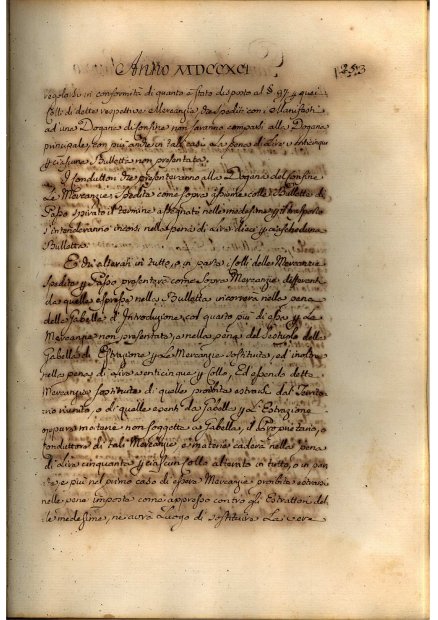 Anno MDCCXCI
1253
regolarsi in conformità di quanto è stato disposto al §. 97. quei
Colli di dette respettive Mercanzie che spediti con Manifesti
ad una Dogana di Confine non saranno comparsi alla Dogana
principale, con più anche in tali casi la pena di Lire venticinque
ciascuna Bulletta non presentata.
I Conduttori che presenteranno alla Dogana del Confine
Le Mercanzie spedite come sopra assieme colle Bullette di
Passo spirato il termine assegnato nelle medesime il trasporto
s'intenderanno incorsi nella pena di Lire dieci ciascheduna
Bulletta.
E chi alterati in tutto, o in parte i Colli delle Mercanzie
spedite Passo presenterà come sopra Mercanzie differenti
da quelle espresse nella Bulletta incorrerà nella pena
della Gabella d'Introduzione, col quarto più di essa La
Mercanzia non presentata, e nella pena del della
Gabella di Estrazione La Mercanzia sostituta, ed inoltre
nella pena di Lire venticinque Collo, Ed essendo detta
Mercanzia sostituta di quelle proibite estrarsi dal Territo
rio riunito, o di quelle esenti da Gabella L'Estrazione
oppure materie non soggette a Gabella, il Proprietario, o
Conduttore di tali Mercanzie, e materie caderà nella pena
di Lire cinquanta ciascun Collo alterato in tutto, o in par
te e più nel primo caso di essere Mercanzie proibite estrarsi
nella pena imposta come appresso contro gli Estrattori del
le medesime, ne avrà Luogo di sostituire La vera